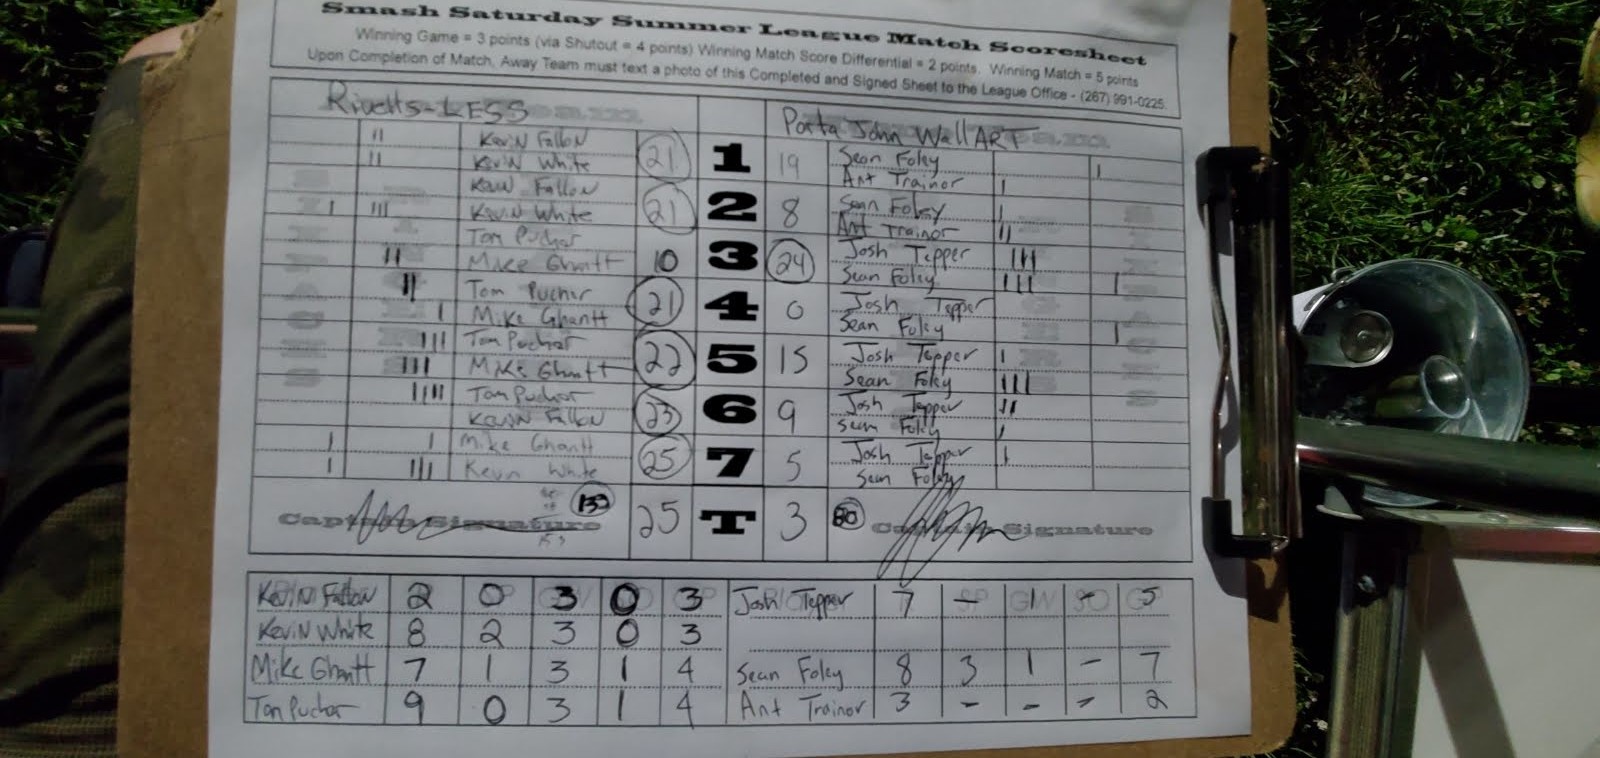 Smash Saturday Summer League Match Scoresheet
Winning Game = 3 points (via Shutout = 4 points) Winning Match Score Differential = 2 points. Winning Match = 5 points
Upon Completion of Match, Away Team must text a photo of this Completed and Signed Sheet to the League Office - (267) 991-0225.
Rivetts-LESS Porta John WallART
|| Kevin Fallon 21 1 19 Sean Foley |
|| Kevin White Ant Trainor |
Kevin Fallon 21 2 8 Sean Foley |
| ||| Kevin White Ant Trainor ||
Tom Puchar 10 3 24 Josh Tepper |||
|| Mike Ghantt Sean Foley ||| |
|| Tom Puchar 21 4 0 Josh Tepper
| Mike Ghantt Sean Foley |
||| Tom Puchar 22 5 15 Josh Tepper |
||| Mike Ghantt Sean Foley |||
|||| Tom Puchar 23 6 9 Josh Tepper ||
Kevin Fallon Sean Foley |
| | Mike Ghantt 25 7 5 Josh Tepper |
| ||| Kevin White Sean Foley
Captain Signature 133 25 T 3 80 Captain Signature
53
Kevin Fallon 2 0 3 0 3 Josh Tepper 7 - 1 - 5
Kevin White 8 2 3 0 3
Mike Ghantt 7 1 3 1 4 Sean Foley 8 3 1 - 7
Tom Puchar 9 0 3 1 4 Ant Trainor 3 - - - 2